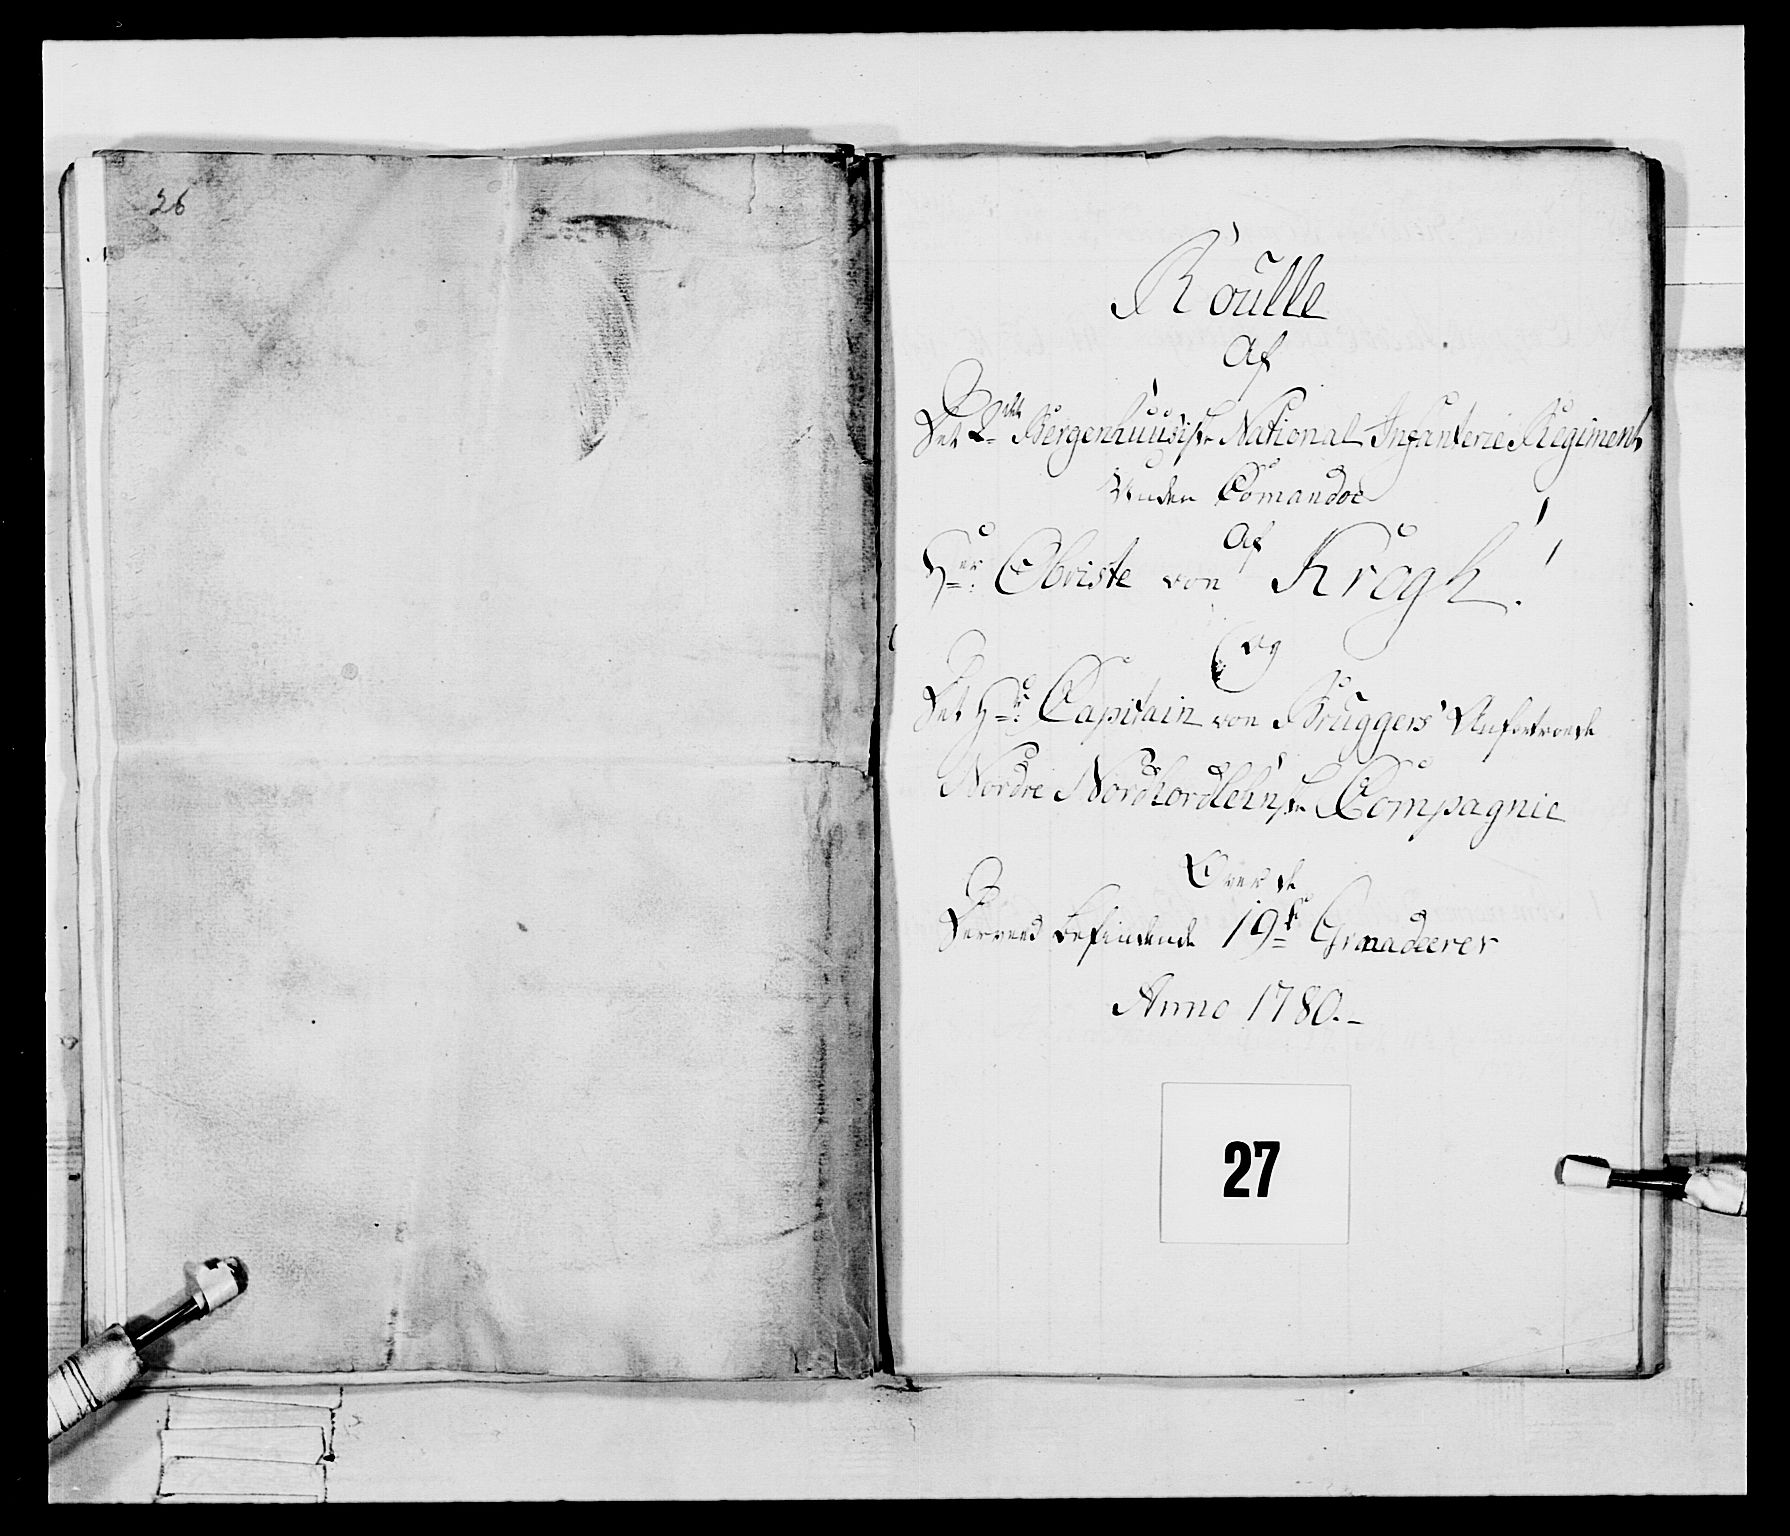 26
Roulle
Af
Det 2det Bergenhuusiske National Infanterie Regiment
Under Comandoe
Af
Hr: Obriste von Krogh!
og
Det Hr: Capitain von Bruggers Anfortroede
Nordre Nordhordlehnske Compagnie
Over de
Derved befindende 19de Grenadeerer
Anno 1780.-
27